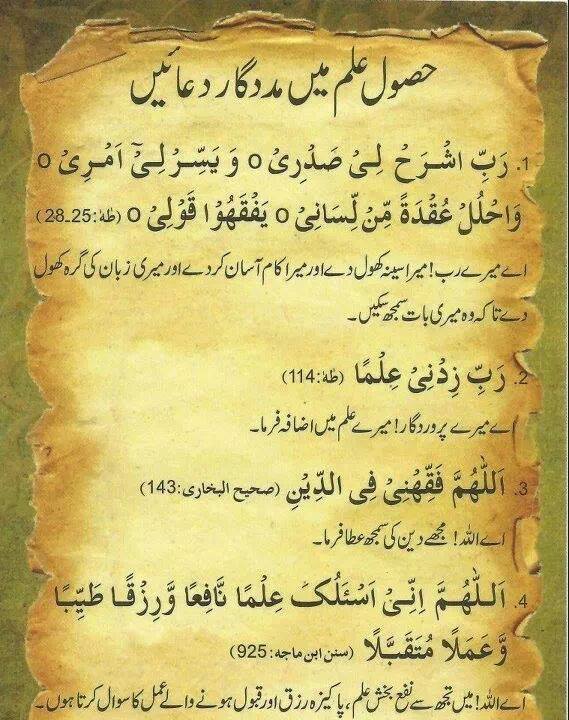 حصول علم میں مددگار دعائیں
1. رَبِّ اشْرَحْ لِیْ صَدْرِیْ o وَ یَسِّرْ لِیْٓ اَمْرِیْ o
وَاحْلُلْ عُقْدَةً مِّنْ لِّسَانِیْ o یَفْقَهُوْا قَوْلِیْ o (طٰهٰ:25۔28)
اے میرے رب! میرا سینہ کھول دے اور میرا کام آسان کر دے اور میری زبان کی گرہ کھول
دے تاکہ وہ میری بات سمجھ سکیں۔
2. رَبِّ زِدْنِیْ عِلْمًا (طٰهٰ:114)
اے میرے پروردگار! میرے علم میں اضافہ فرما۔
3. اَللّٰهُمَّ فَقِّهْنِیْ فِی الدِّیْنِ (صحیح البخاری:143)
اے اللہ! مجھے دین کی سمجھ عطا فرما۔
4. اَللّٰهُمَّ اِنِّیْ اَسْئَلُکَ عِلْمًا نَّافِعًا وَّرِزْقًا طَیِّبًا
وَّعَمَلًا مُتَقَبَّلًا (سنن ابن ماجہ:925)
اے اللہ! میں تجھ سے نفع بخش علم، پاکیزہ رزق اور قبول ہونے والے عمل کا سوال کرتا ہوں۔